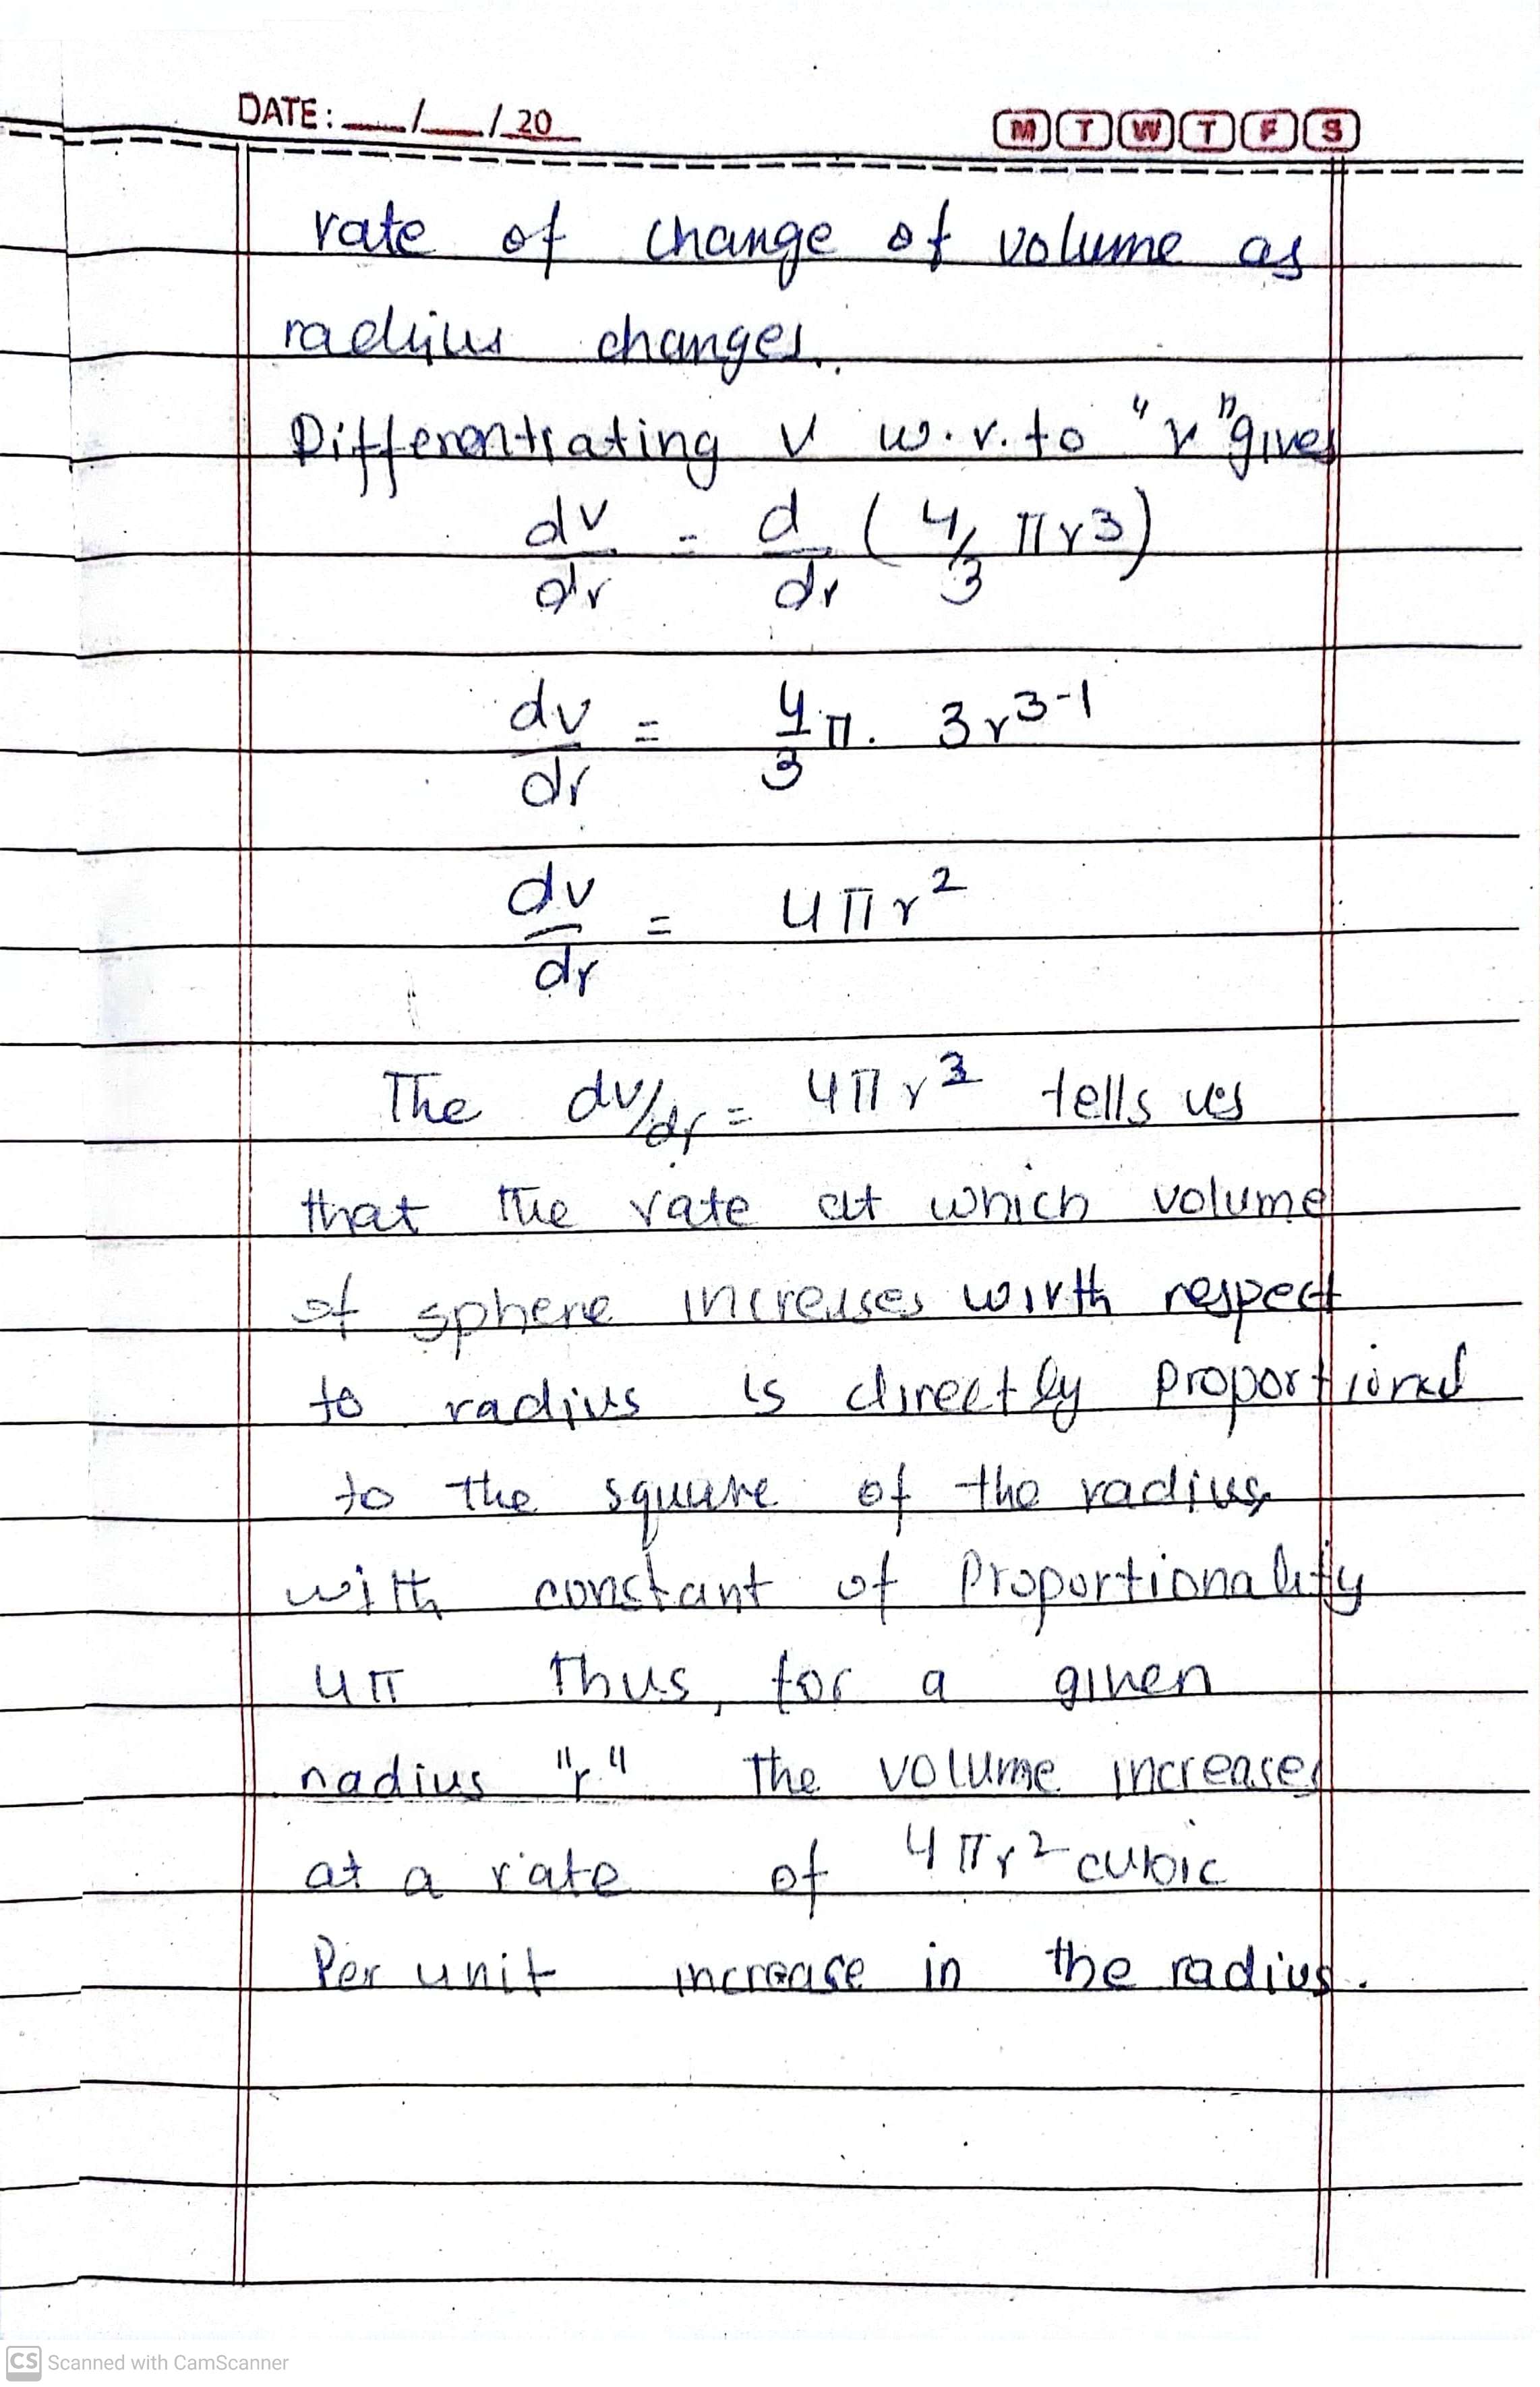 DATE: __/__/20__
M T W T F S
rate of change of volume as
radius changes.
Differentiating V w.r.to "r" gives
dv/dr = d/dr (4/3 πr3)
dv/dr = 4/3 π. 3r^3-1
dv/dr = 4πr²
The dv/dr = 4πr² tells us
that the rate at which volume
of sphere increases with respect
to radius is directly proportional
to the square of the radius
with constant of Proportionality
4π Thus, for a given
radius "r" the volume increases
at a rate of 4πr² cubic
Per unit increase in the radius.
CS Scanned with CamScanner